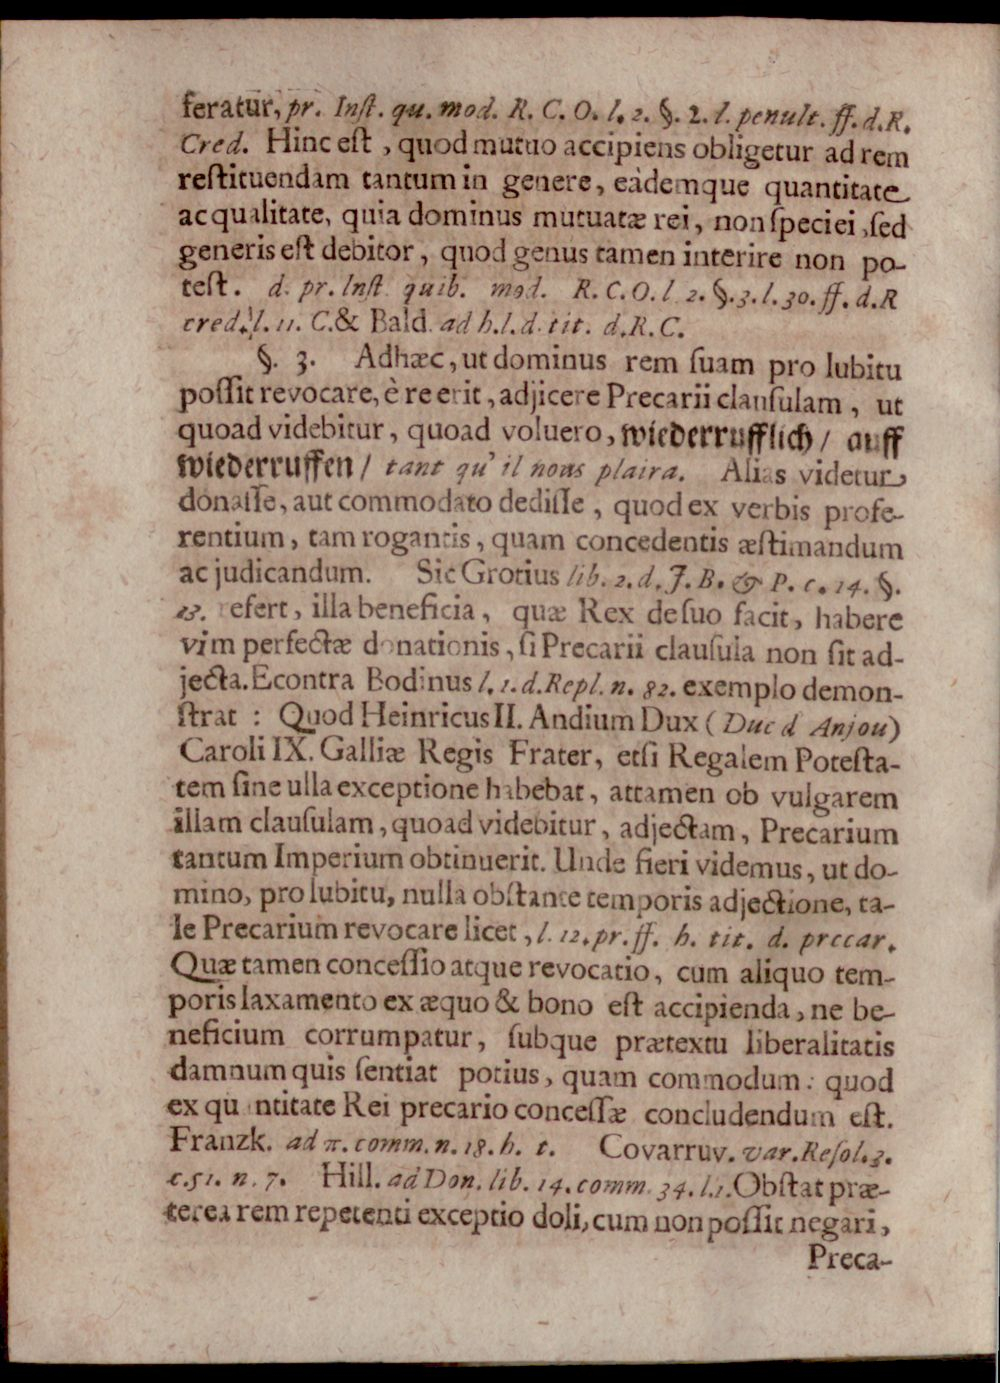 feratur, pr. Inſt. qu. mod. R. C. O. l. 2. §. 2. l. penult. ff. d. R.
Cred. Hinc eſt, quod mutuo accipiens obligetur ad rem
reſtituendam tantum in genere, eâdemque quantitate
ac qualitate, quia dominus mutuatæ rei, non ſpeciei, ſed
generis eſt debitor, quod genus tamen interire non po-
teſt. d. pr. Inſt quib. mod. R. C. O. l 2. §. 3. l. 30. ff. d. R
cred. l. 11. C. & Bald. ad h. l. d. tit. d. R. C.
§. 3. Adhæc, ut dominus rem ſuam pro lubitu
poſſit revocare, è re erit, adjicere Precarii clauſulam, ut
quoad videbitur, quoad voluero, wiederrufflich / auff
wiederruffen / tant qu' il nous plaira. Alias videtur
donaſſe, aut commodato dediſſe, quod ex verbis profe-
rentium, tam rogantis, quam concedentis æſtimandum
ac judicandum. Sic Grotius lib. 2. d. J. B. & P. c. 14. §.
13. refert, illa beneficia, quæ Rex de ſuo facit, habere
vim perfectæ donationis, ſi Precarii clauſula non ſit ad-
jecta. Econtra Bodinus l. 1. d. Repl. n. 82. exemplo demon-
ſtrat : Quod Heinricus II. Andium Dux ( Duc d Anjou )
Caroli IX. Galliæ Regis Frater, etſi Regalem Poteſta-
tem ſine ulla exceptione habebat, attamen ob vulgarem
illam clauſulam, quoad videbitur, adjectam, Precarium
tantum Imperium obtinuerit. Unde fieri videmus, ut do-
mino, pro lubitu, nulla obſtante temporis adjectione, ta-
le Precarium revocare licet, l. 12. pr. ff. h. tit. d. precar.
Quæ tamen conceſſio atque revocatio, cum aliquo tem-
poris laxamento ex æquo & bono eſt accipienda, ne be-
neficium corrumpatur, ſubque prætextu liberalitatis
damnum quis ſentiat potius, quam commodum: quod
ex quantitate Rei precario conceſſæ concludendum eſt.
Franzk. ad π. comm. n. 18. h. t. Covarruv. var. Reſol. 3.
c. 51. n. 7. Hill. ad Don. lib. 14. comm. 34. l. 1. Obſtat præ-
terea rem repetenti exceptio doli, cum non poſſit negari,
Preca-